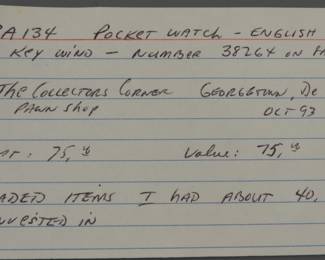 PA 134 POCKET WATCH - ENGLISH
KEY WIND - NUMBER 38264 ON
THE COLLECTORS CORNER GEORGETOWN, De
PAWN SHOP OCT 93
75,00 Value: 75,00
ITEMS I HAD ABOUT 40,
IN